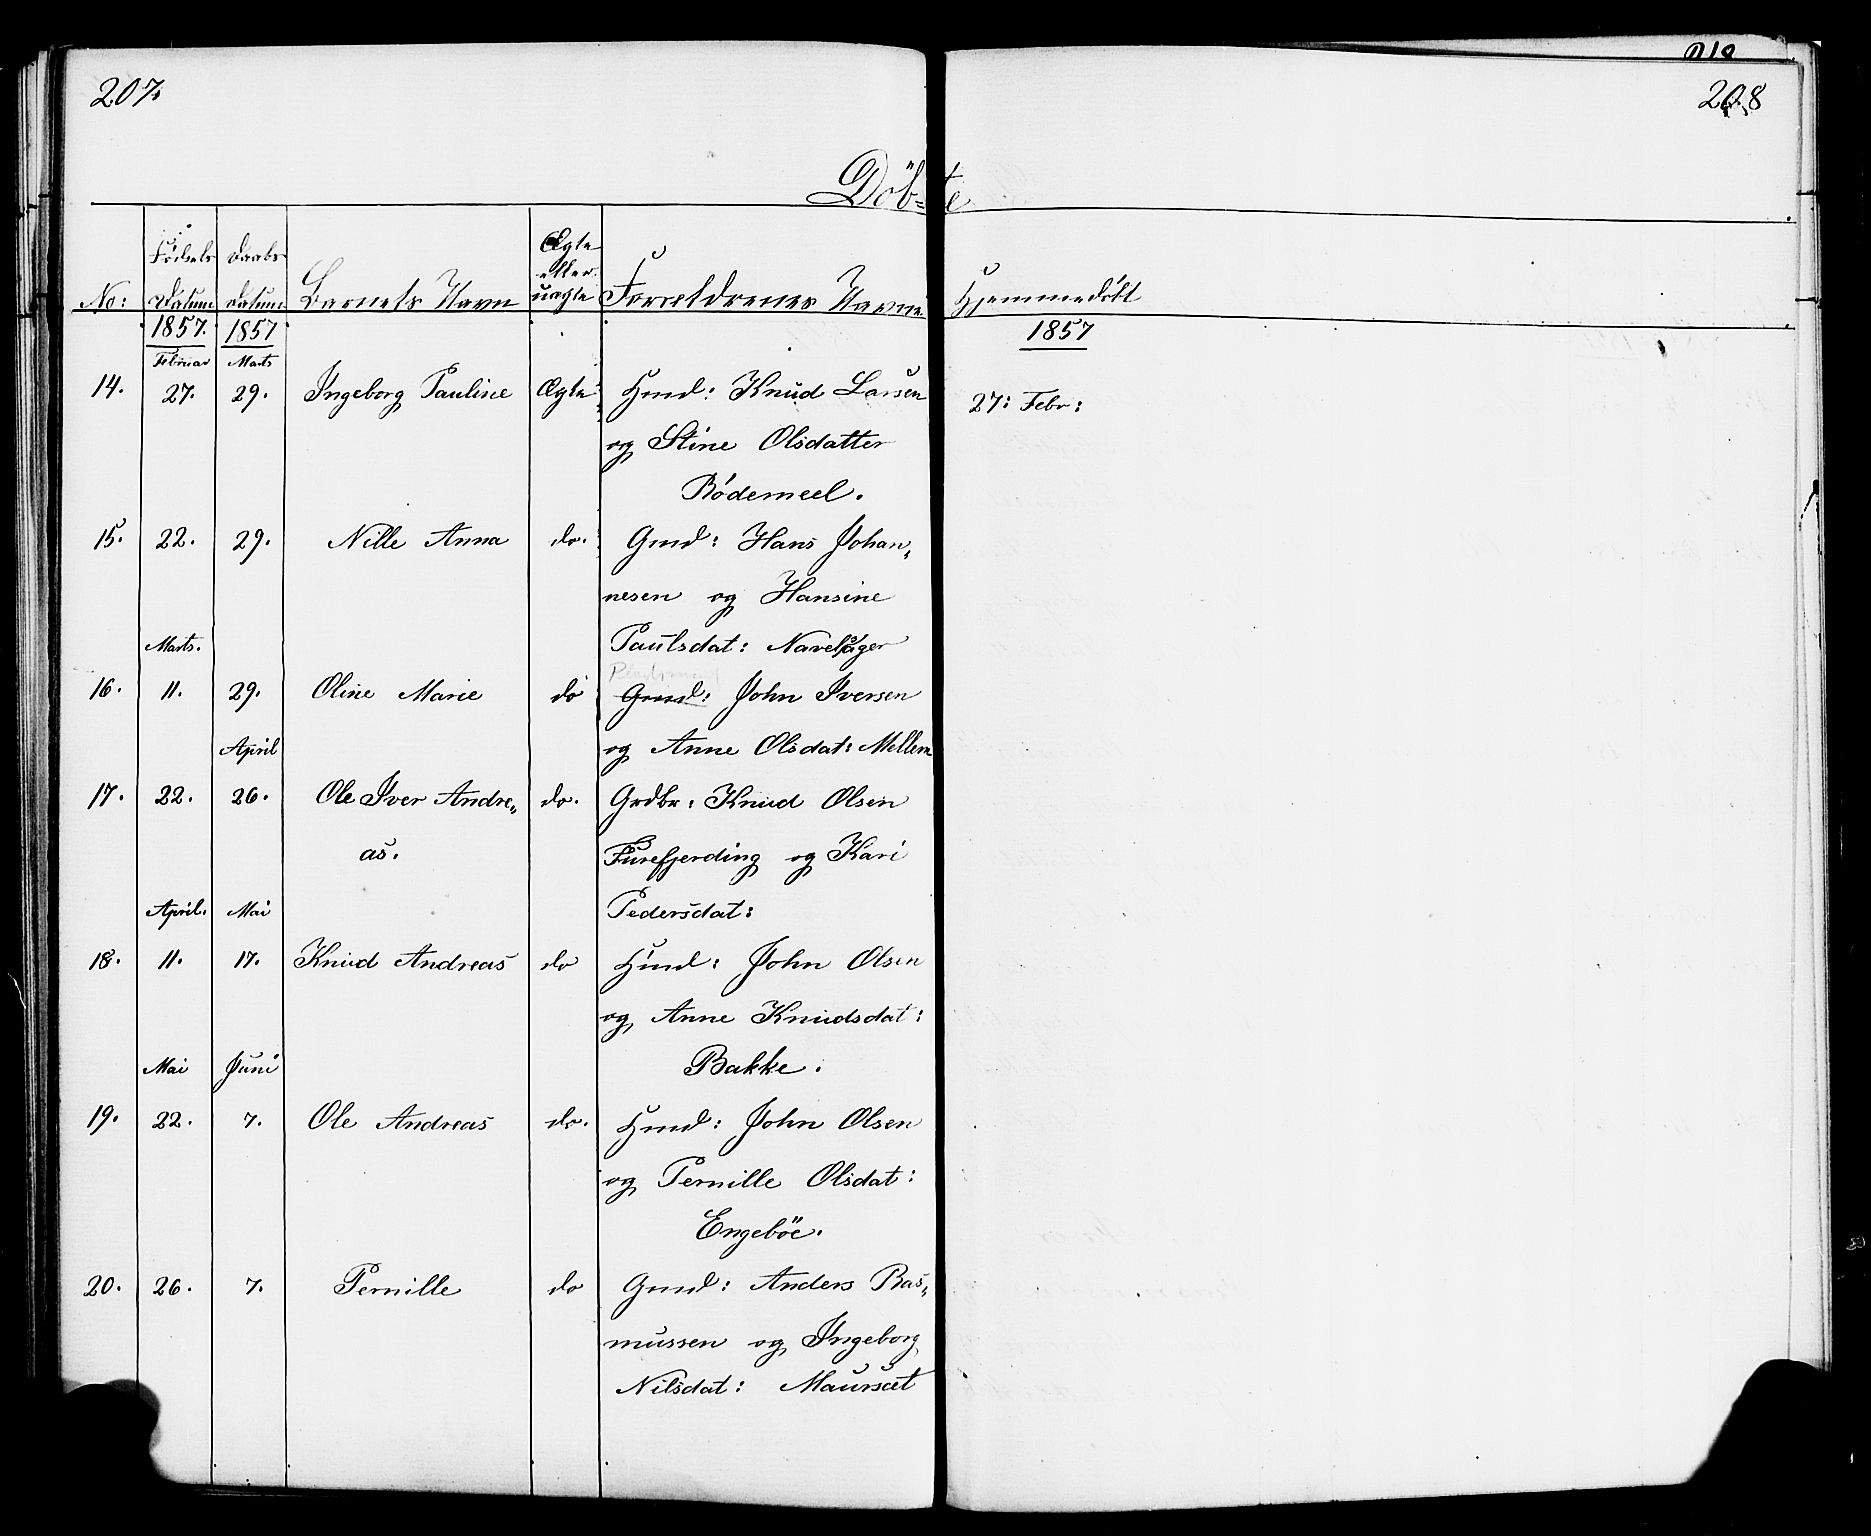 207.
208
Döb=te
No: Fødsels Datum Daabs Datum Barnets Navn Ægte eller uægte Forældrenes Navne Hjemmedøbt
1857. 1857 1857
Februar Marts
14. 27. 29. Ingeborg Pauline Ægte Hmd: Knud Larsen 27: Febr:
og Stine Olsdatter
Bödemeel.
15. 22. 29. Nille Anna do. Gmd: Hans Johan„
nesen og Hansine
Marts. Paulsdat: Navelsager
16. 11. 29. Oline Marie do Gmd: John Iversen
April og Anne Olsdat: Mellem
17. 22. 26. Ole Iver Andre„ do. Grdbr: Knud Olsen
as. Furefjerding og Kari
April. Mai Pedersdat:
18. 11. 17. Knud Andreas do Hmd: John Olsen
og Anne Knudsdat:
Mai Juni Bakke.
19. 22. 7. Ole Andreas do. Hmd: John Olsen
og Pernille Olsdat:
Engeböe.
20. 26. 7. Pernille do Gmd: Anders Ras„
mussen og Ingeborg
Nilsdat: Maursæt